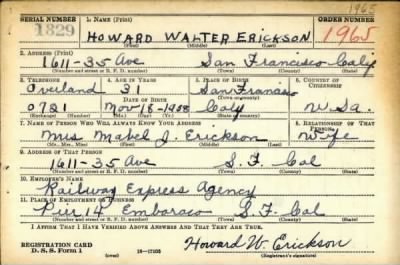 1965
SERIAL NUMBER 1. NAME (Print) ORDER NUMBER
1829 HOWARD WALTER ERICKSON 1965
(First) (Middle) (Last)
2. ADDRESS (Print)
1611-35 Ave San Francisco Calif
(Number and street or R. F. D. number) (Town) (County) (State)
3. TELEPHONE 4. AGE IN YEARS 5. PLACE OF BIRTH 6. COUNTRY OF CITIZENSHIP
Overland 31 San Francisco
DATE OF BIRTH (Town or county)
0721 Nov-18-1908 Caly U Sa.
(Exchange) (Number) (Mo.) (Day) (Yr.) (State or country)
7. NAME OF PERSON WHO WILL ALWAYS KNOW YOUR ADDRESS 8. RELATIONSHIP OF THAT PERSON
Mrs Mabel J. Erickson Wife
(Mr., Mrs., Miss) (First) (Middle) (Last)
9. ADDRESS OF THAT PERSON
1611-35 Ave S. F. Cal
(Number and street or R. F. D. number) (Town) (County) (State)
10. EMPLOYER'S NAME
Railway Express Agency
11. PLACE OF EMPLOYMENT OR BUSINESS
Pier 14 Embarco S. F. Cal
(Number and street or R. F. D. number) (Town) (County) (State)
I AFFIRM THAT I HAVE VERIFIED ABOVE ANSWERS AND THAT THEY ARE TRUE.
REGISTRATION CARD Howard W. Erickson
D. S. S. Form 1 16-17105 (Registrant's signature)